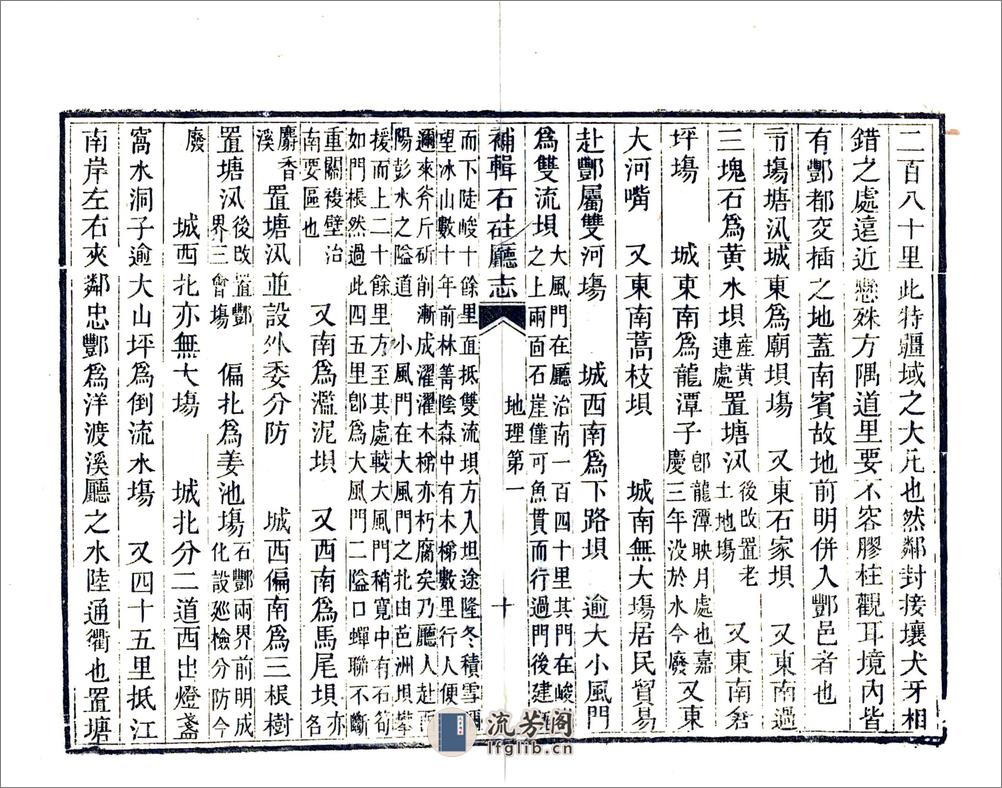 二百八十里此特疆域之大凡也然鄰封接壤犬牙相
錯之處遠近懸殊方隅道里要不容膠柱觀耳境內皆
有酆都交插之地蓋南賓故地前明併入酆邑者也
市場塘汛城東為廟壩場 又東石家壩 又東南過
三塊石為黃水壩產黃連處置塘汛後改置老土地場 又東南
坪場 城東南為龍潭子卽龍潭映月處也嘉慶三年没於水今廢 又東
大河嘴 又東南蒿枝壩 城南無大場居民貿易
赴酆屬雙河場 城西南為下路壩 逾大小風門
為雙流壩大風門在廳治南一百四十里其門在峻
之上兩面石崖僅可魚貫而行過門後建
補輯石砫廳志
地理第一
十
而下陡峻十餘里直抵雙流壩方入坦途隆冬積雪
望冰山數十年前林箐陰森中有木梯數里行人便
邇來斧斤斫削漸成濯濯木梯亦朽腐矣乃廳人赴酉
陽彭水之隘道 小風門在大風門之北由芭洲壩攀
援而上二十餘里方至其處較大風門稍寬中有石筍
如門棖然過此四五里卽為大風門二隘口蟬聯不斷
重關複壁治
南要區也 又南為濫泥壩 又西南為馬尾壩亦各
麝香溪置塘汛並設外委分防 城西偏南為三根樹
置塘汛後改置酆界三會場 偏北為姜池場石酆兩界前明成化設廵檢分防今
廢 城西北亦無大場 城北分二道西出燈盞
窩水洞子逾大山坪為倒流水場 又四十五里抵江
南岸左右夾鄰忠酆為洋渡溪廳之水陸通衢也置塘
流芳阁
lfglib.cn